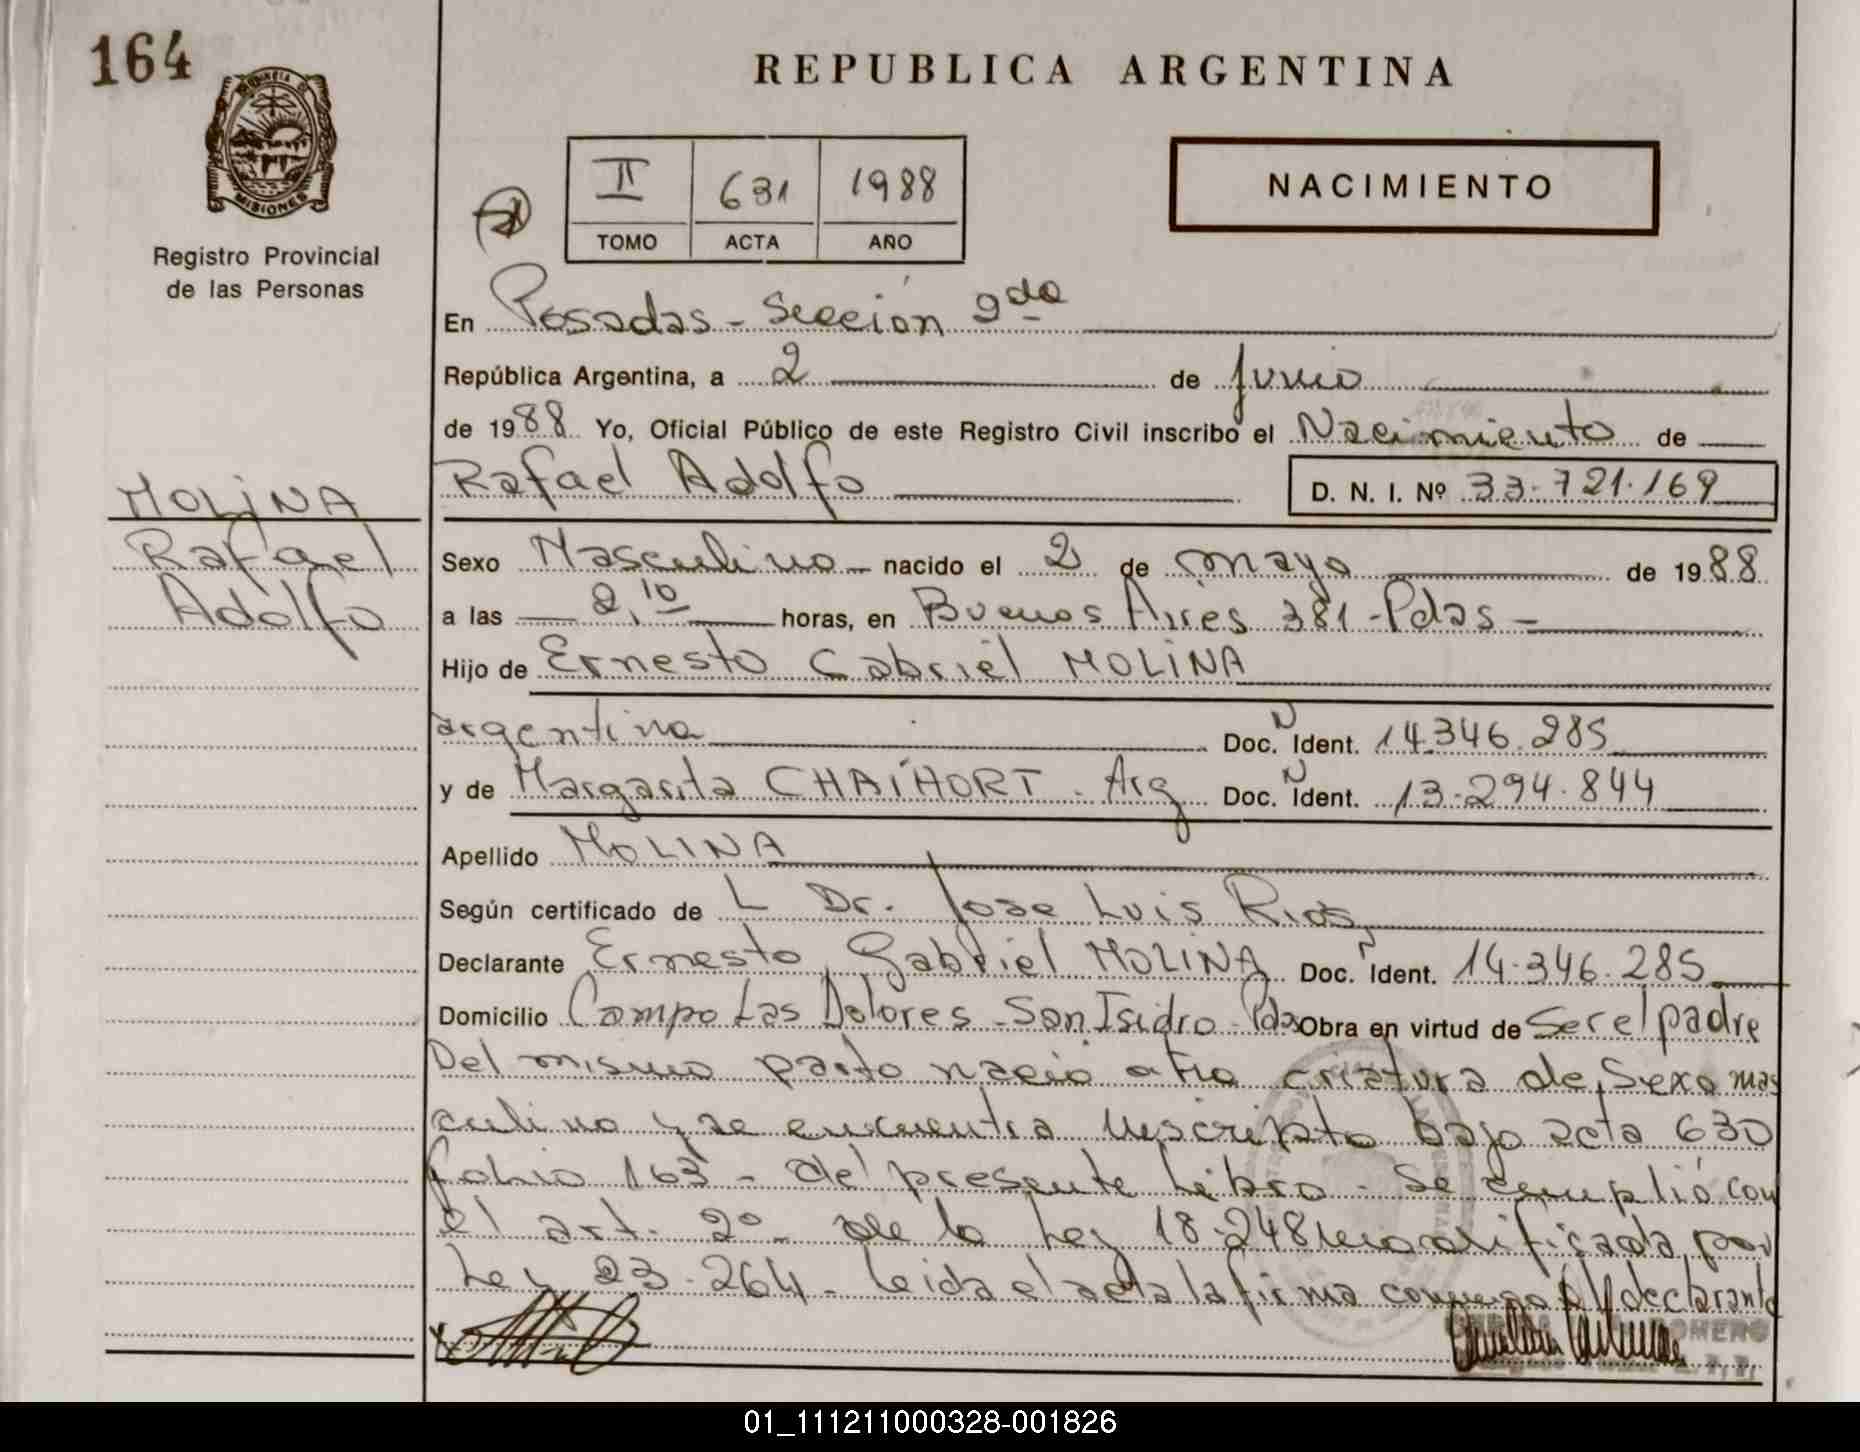 164
REPUBLICA ARGENTINA
PROVINCIA D
MISIONES
Registro Provincial
de las Personas
II 631 1988
TOMO ACTA AÑO
NACIMIENTO
En Posadas - Sección 2da
República Argentina, a 2 de Junio
de 1988 Yo, Oficial Público de este Registro Civil inscribo el Nacimiento de
Rafael Adolfo D. N. I. Nº 33.721.169
MOLINA
Rafael
Adolfo
Sexo Masculino nacido el 2 de mayo de 1988
a las 2,10 horas, en Buenos Aires 381 - Pdas -
Hijo de Ernesto Gabriel MOLINA
argentina Doc. N Ident. 14.346.285
y de Margarita CHAIHORT . Arg Doc. N Ident. 13.294.844
Apellido MOLINA
Según certificado de L Dr. Jose Luis Rios
Declarante Ernesto Gabriel MOLINA Doc. N Ident. 14.346.285
Domicilio Campo Las Dolores - San Isidro - Pdas Obra en virtud de Ser el padre
Del mismo parto nacio otra criatura de Sexo mas
culino y se encuentra inscripto bajo acta 630
folio 163 - del presente Libro - Se cumplió con
el art. 2º - de la Ley 18.248 modificada por
Ley 23.264 - leida el acta la firma conmigo el declarante
ROMERO
01_111211000328-001826